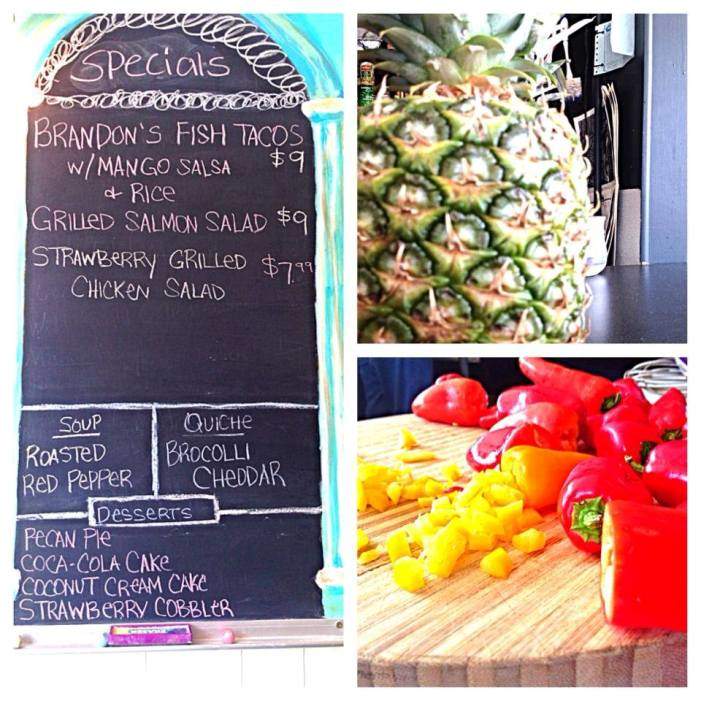 Specials
BRANDON'S FISH TACOS
W/MANGO SALSA $9
& RICE
GRILLED SALMON SALAD $9
STRAWBERRY GRILLED $7.99
CHICKEN SALAD
SOUP
ROASTED
RED PEPPER
QUICHE
BROCOLLI
CHEDDAR
DESSERTS
PECAN PIE
COCA-COLA CAKE
COCONUT CREAM CAKE
STRAWBERRY COBBLER